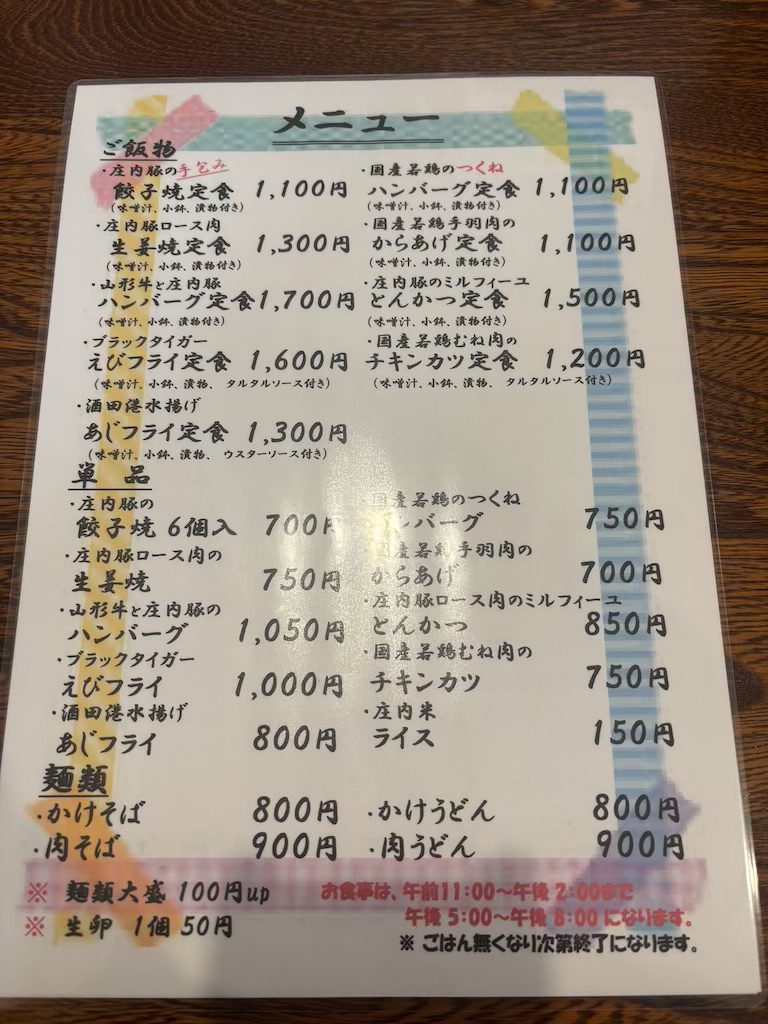 メニュー
ご飯物
・庄内豚の手包み
餃子焼定食 1,100円
(味噌汁、小鉢、漬物付き)
・国産若鶏のつくね
ハンバーグ定食 1,100円
(味噌汁、小鉢、漬物付き)
・庄内豚ロース肉
生姜焼定食 1,300円
(味噌汁、小鉢、漬物付き)
・国産若鶏手羽肉の
からあげ定食 1,100円
(味噌汁、小鉢、漬物付き)
・山形牛と庄内豚
ハンバーグ定食 1,700円
(味噌汁、小鉢、漬物付き)
・庄内豚のミルフィーユ
とんかつ定食 1,500円
(味噌汁、小鉢、漬物付き)
・ブラックタイガー
えびフライ定食 1,600円
(味噌汁、小鉢、漬物、 タルタルソース付き)
・国産若鶏むね肉の
チキンカツ定食 1,200円
(味噌汁、小鉢、漬物、 タルタルソース付き)
・酒田港水揚げ
あじフライ定食 1,300円
(味噌汁、小鉢、漬物、 ウスターソース付き)
単品
・庄内豚の
餃子焼 6個入 700円
国産若鶏のつくね
ハンバーグ 750円
・庄内豚ロース肉の
生姜焼 750円
国産若鶏手羽肉の
からあげ 700円
・山形牛と庄内豚の
ハンバーグ 1,050円
・庄内豚ロース肉のミルフィーユ
とんかつ 850円
・ブラックタイガー
えびフライ 1,000円
・国産若鶏むね肉の
チキンカツ 750円
・酒田港水揚げ
あじフライ 800円
・庄内米
ライス 150円
麺類
・かけそば 800円
・かけうどん 800円
・肉そば 900円
・肉うどん 900円
※ 麺類大盛 100円up
※ 生卵 1個 50円
お食事は、午前11:00〜午後 2:00まで
午後 5:00〜午後 8:00 になります。
※ ごはん無くなり次第終了になります。